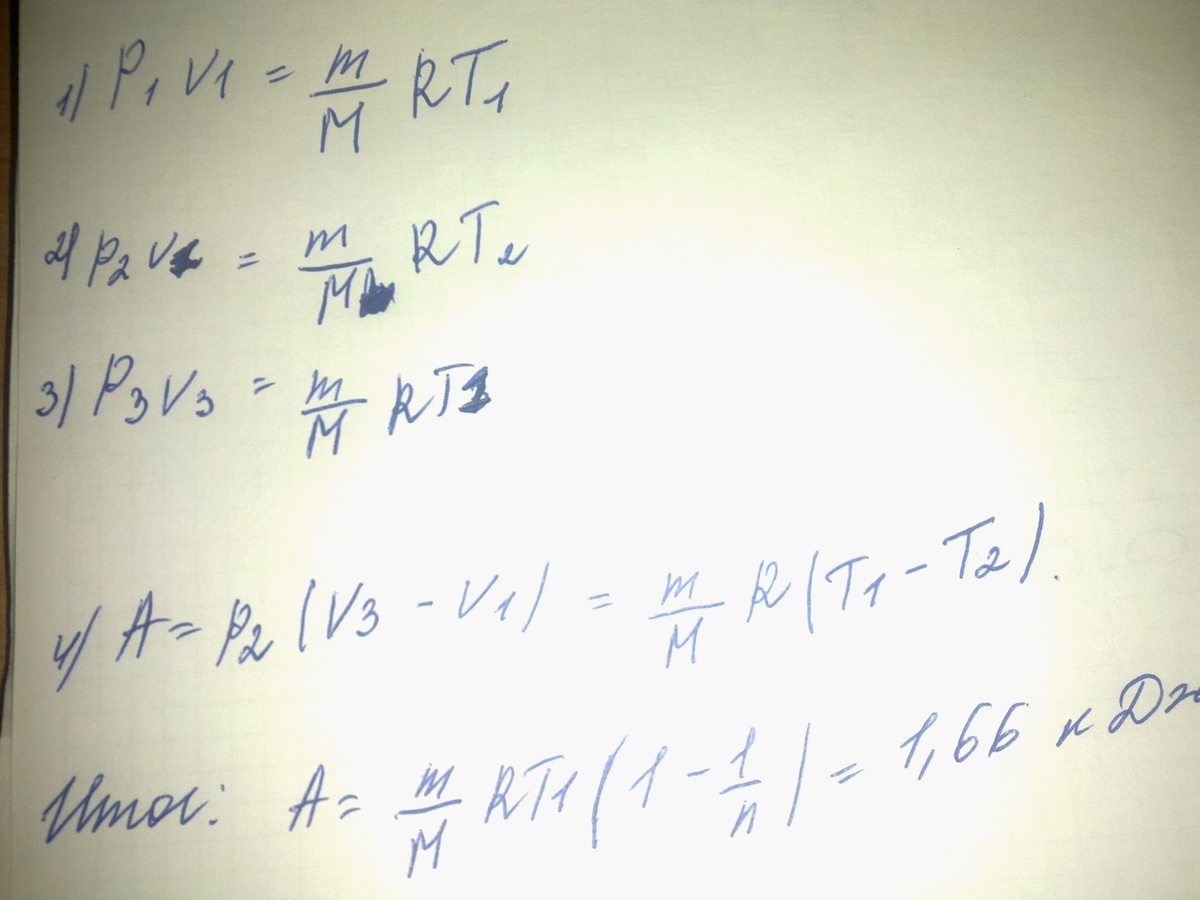 1) P₁ V₁ = m/M RT₁
2) p₂ V₁ = m/M RT₂
3) P₃ V₃ = m/M RT₁
4) A = p₂ (V₃ - V₁) = m/M R (T₁ - T₂).
Итог: A = m/M RT₁ (1 - 1/n) = 1,66 кДж